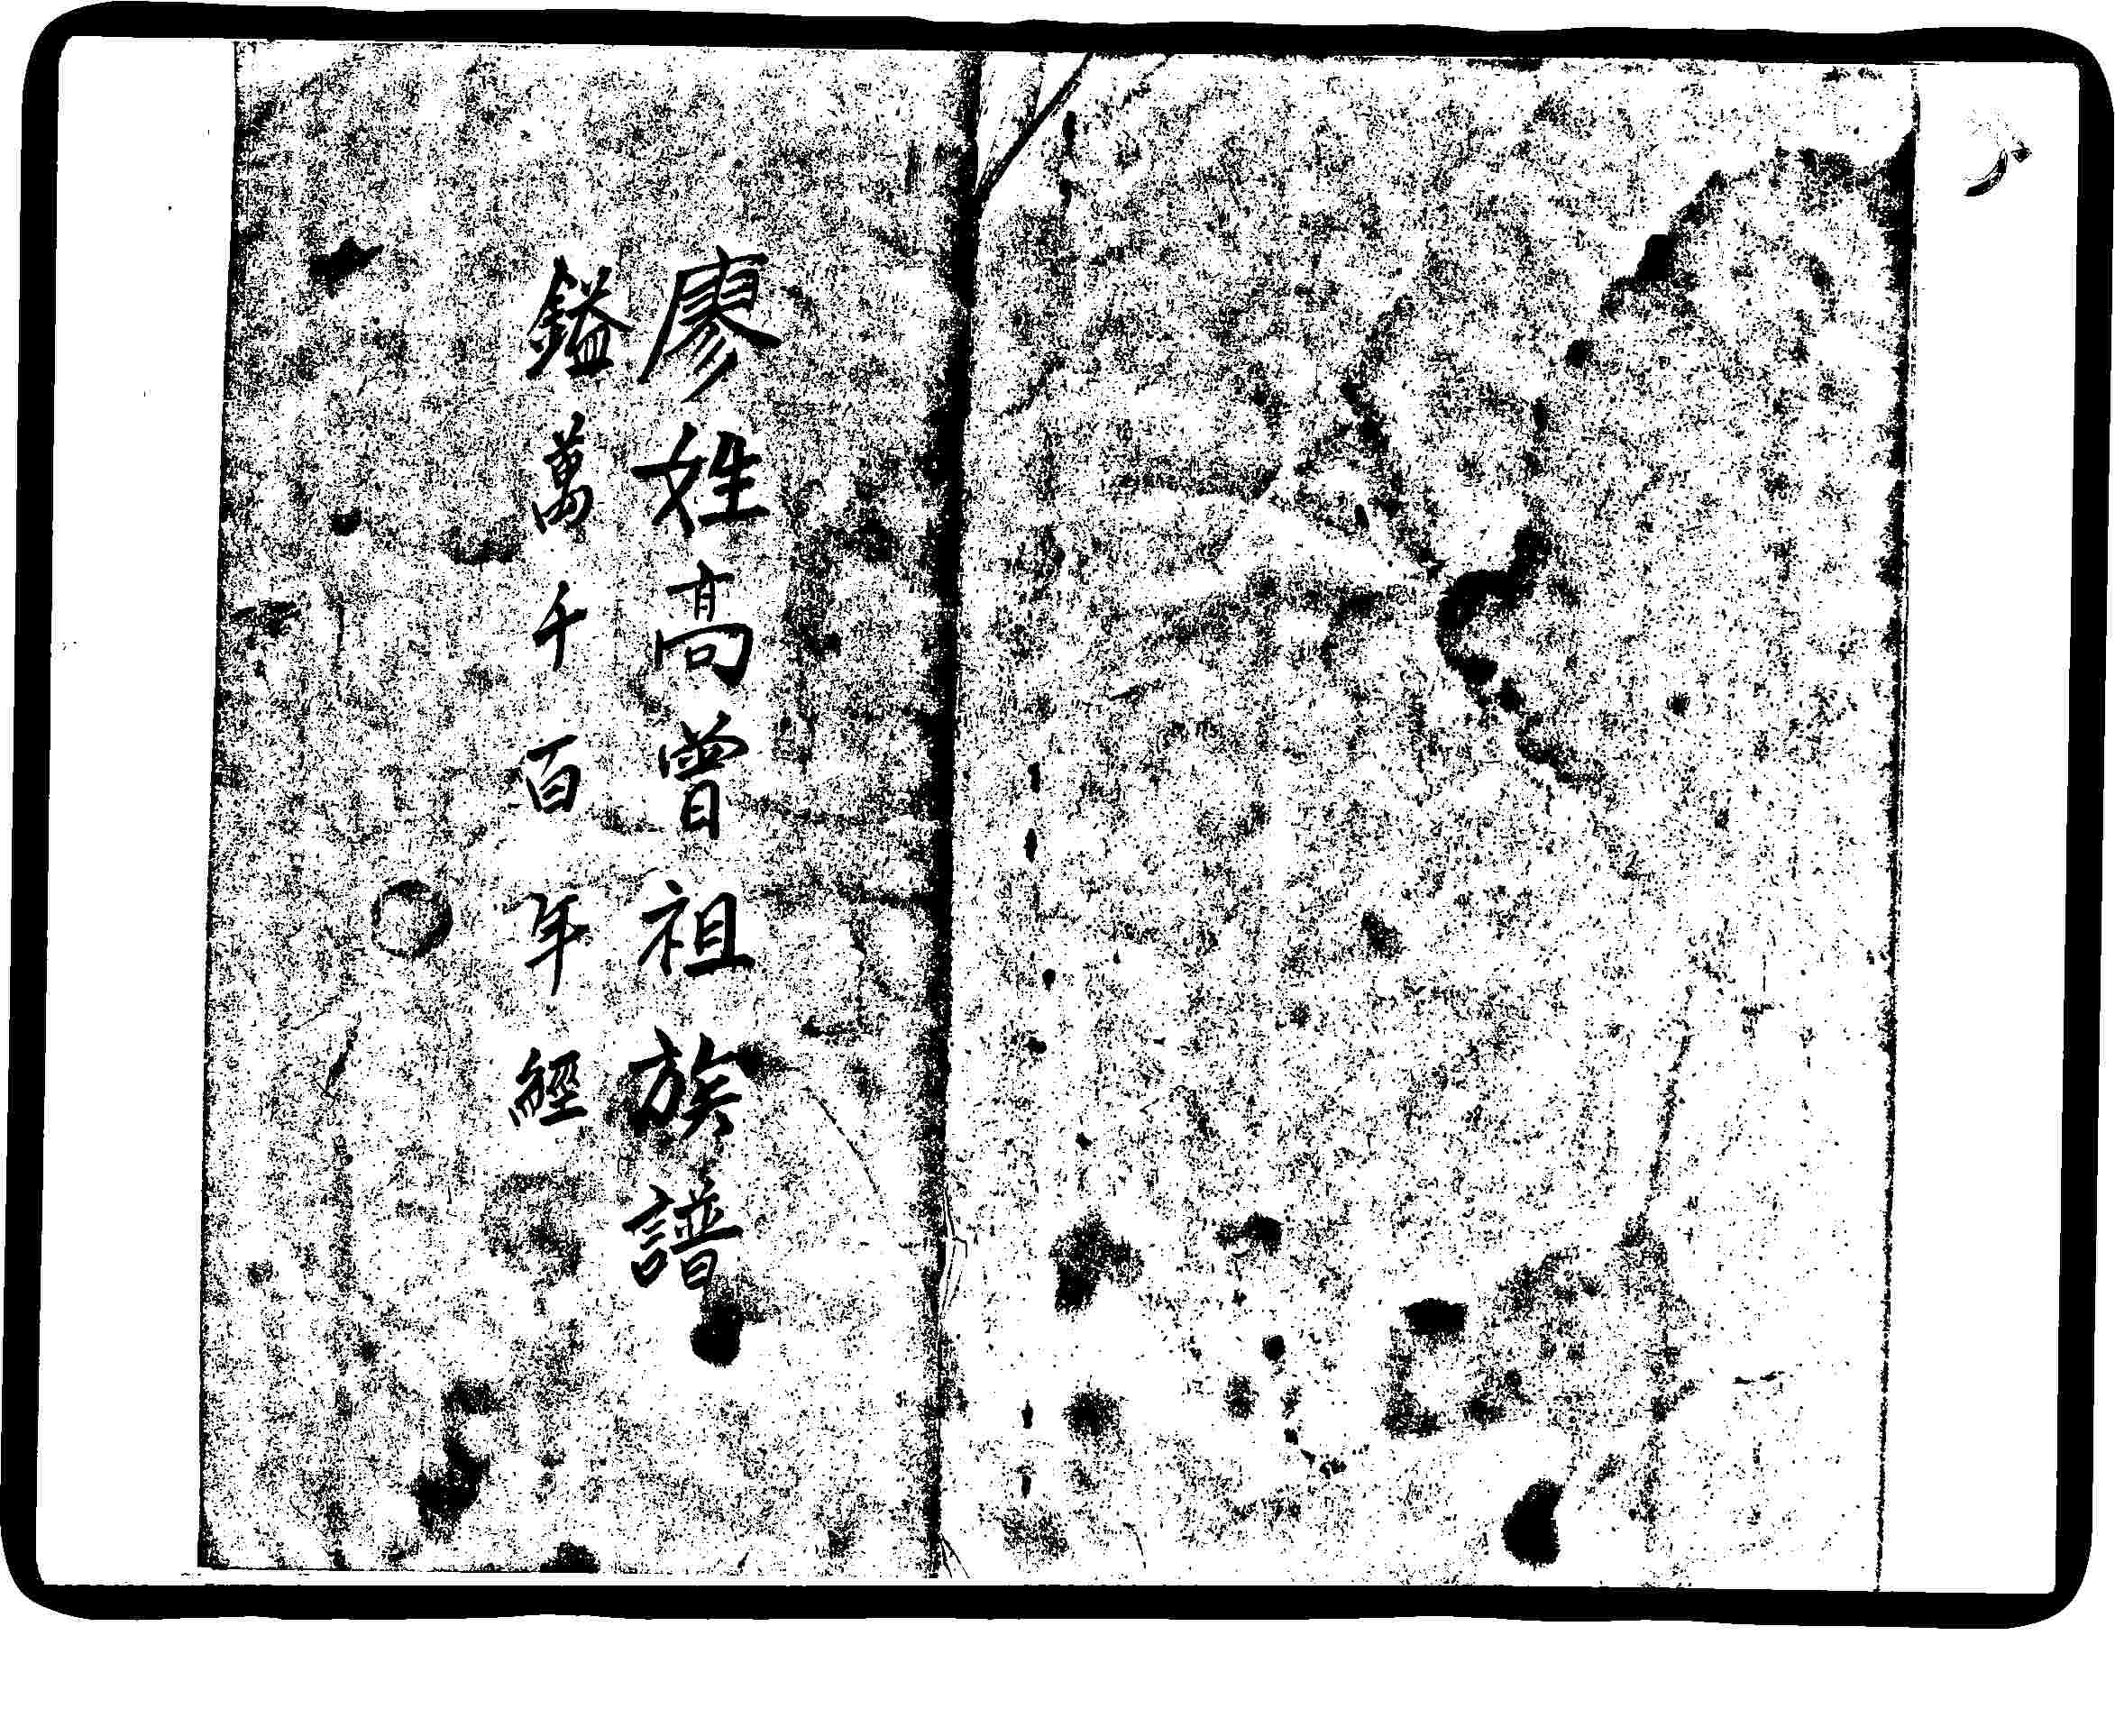 廖姓高曾祖族譜
鎰萬千百年經